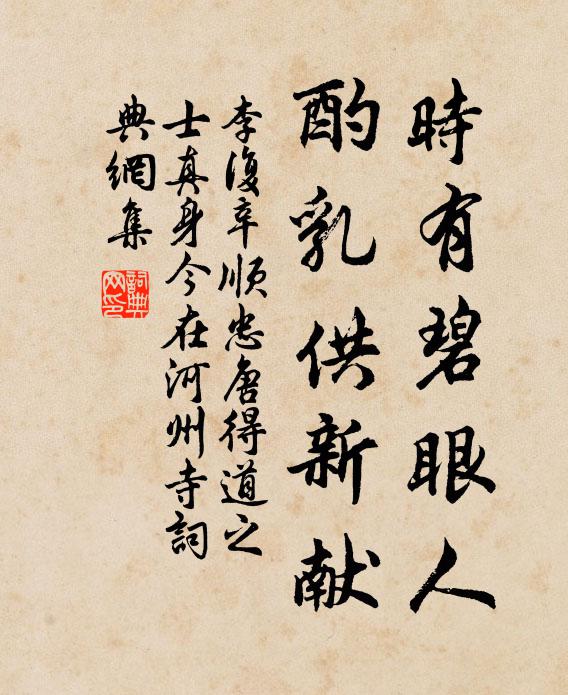 時有碧眼人
酌乳供新献
李復辛順忠唐得道之
士真身今在河州寺詞
典網集
詞典网印